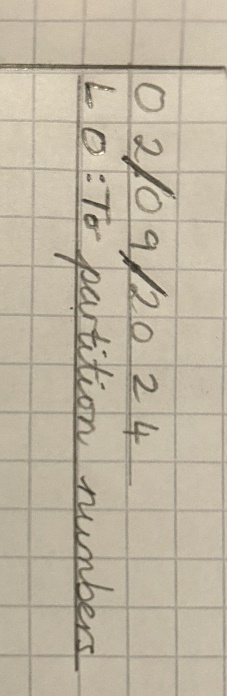 02/09/2024
LO: To partition numbers